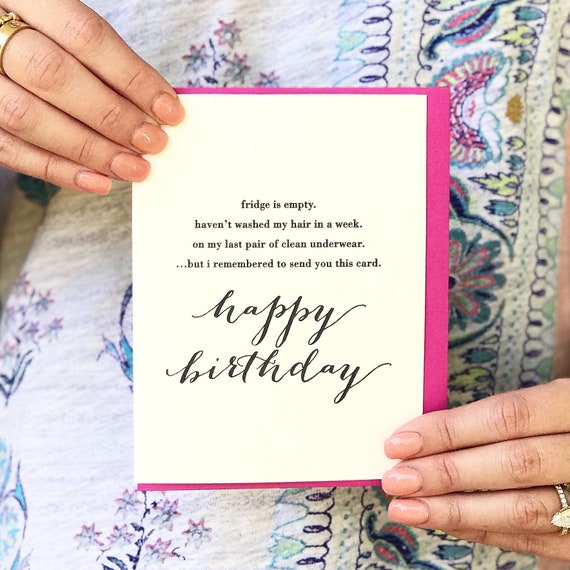 fridge is empty.
haven't washed my hair in a week.
on my last pair of clean underwear.
...but i remembered to send you this card.
happy
birthday